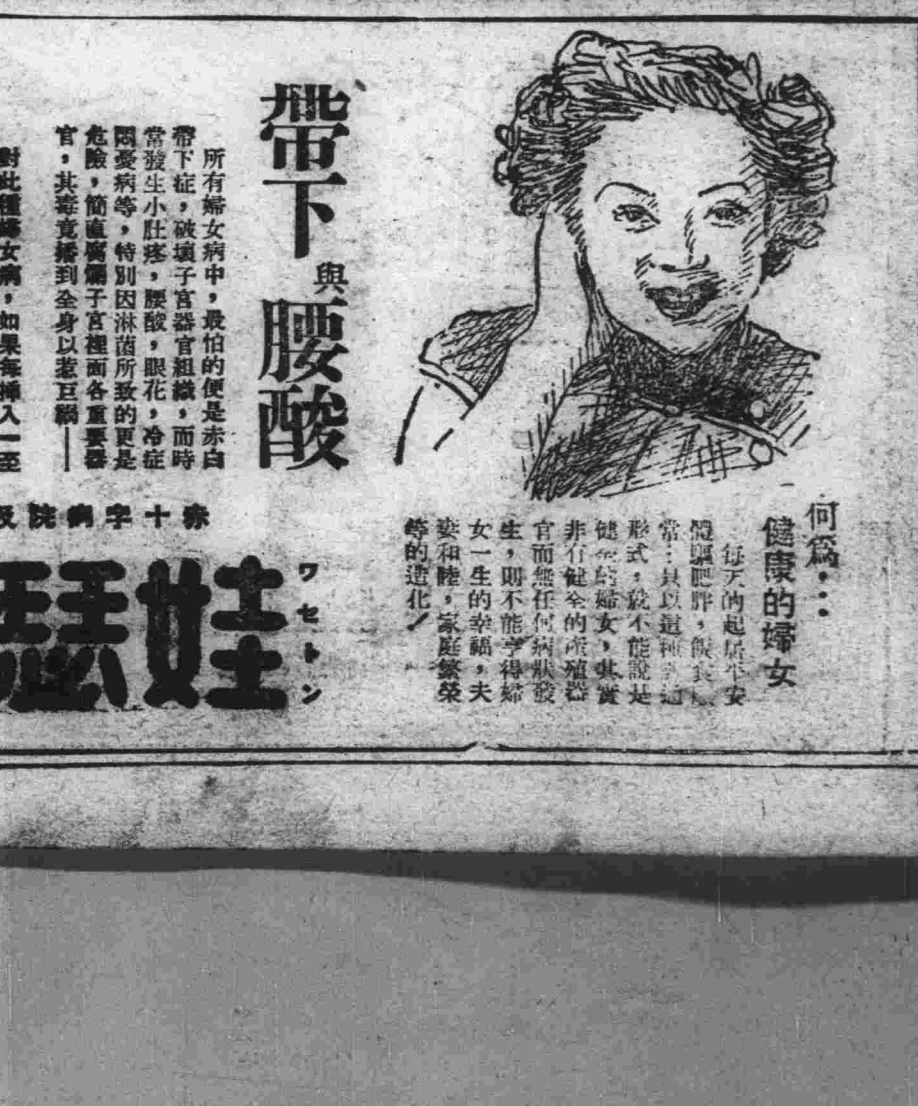 何爲⋮
健康的婦女
每天的起居平安
體軀肥胖，飯食
常：只以這種普通
形式，就不能說是
健全的婦女，其實
非有健全的產殖器
官而無任何病狀發
生，則不能享得婦
女一生的幸福，夫
妻和睦，家庭繁榮
等的造化！
帶下與腰酸
所有婦女病中，最怕的便是赤白
帶下症，破壞子宮器官組織，而時
常發生小肚疼，腰酸，眼花，冷症
悶憂病等，特別因淋菌所致的更是
危險，簡直腐爛子宮裡面各重要器
官，其毒竟播到全身以惹巨禍——
對此種婦女病，如果每揷入一至
赤十字病院
ワセトン
娃瑟